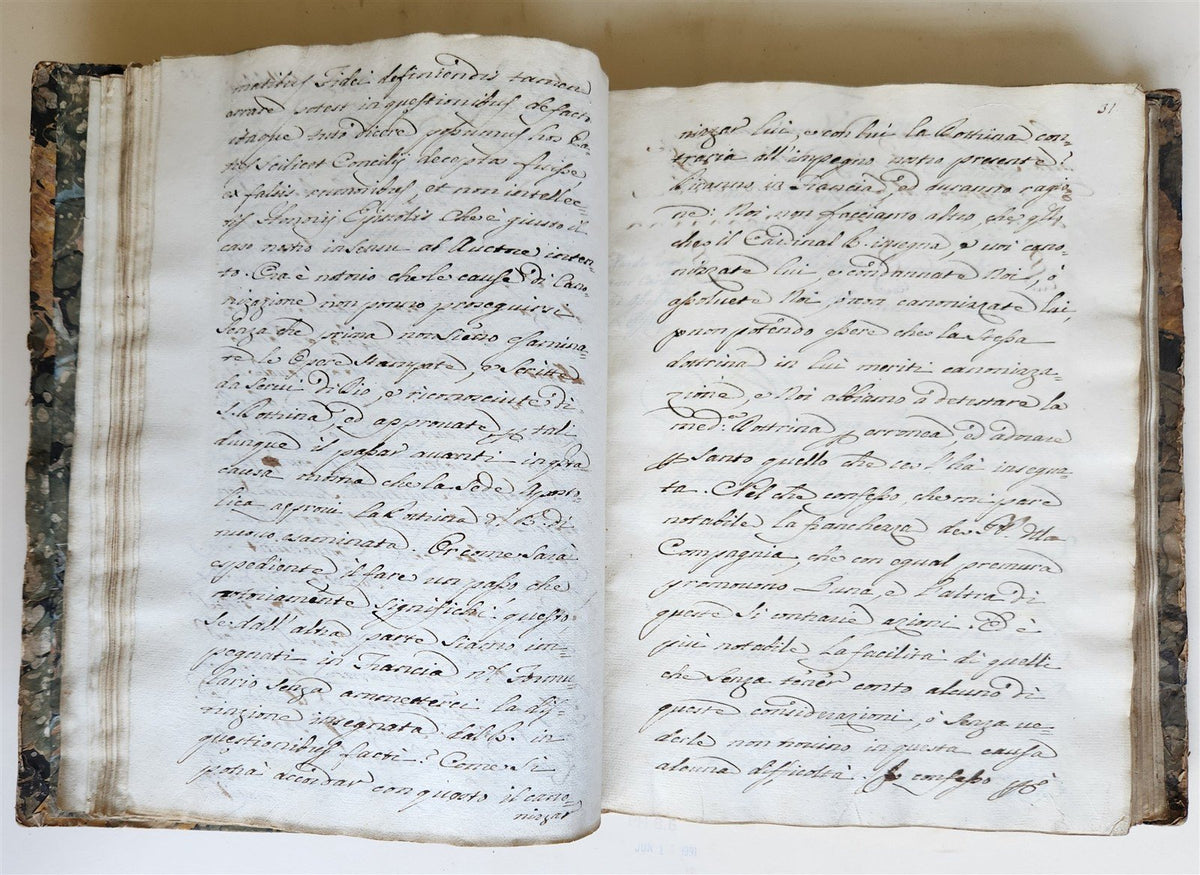 matibus Fidei definiendis tamen
errare potest in questionibus de facto
itaque tuto dicere possumus hos Pa-
tres scilicet Concilij decepta fuisse
ex falsis rumoribus, et non intellec-
tis Honorij Epistolis che è giusto il
caso nostro in sensu al Auctore inten-
to. Ora è notorio che le cause di Cano-
nizazione non ponno proseguirsi
senza che prima non sieno esamina-
te le Opere stampate, e scritte
da servi di Dio, e riconosciute di
S. Dottrina, ed approvate p tali
dunque il passar avanti in qsta
causa prima che la Sede Aposto-
lica approvi la Dottrina di B. di
nuovo esaminata. Or come sarà
espediente il fare un passo che
 significhi questo
se dall'altra parte siamo im-
pegnati in Francia pl Formu-
lario senza ammetterci la dis-
tinazione insegnata dal B. in
questionibus facti? Come si
potrà accordar con questo il cano-
nizzar
31
nizzar lui, e con lui la Dottrina con-
traria all'impegno nostro presente?
Diranno in Francia, ed avranno ragio-
ne: Noi non facciamo altro, che qllo
che il Cardinal B. insegna, e voi cano-
nizzate lui, e condannate Noi, ò
assoluete Noi, ò non canonizzate lui,
non potendo essere che la stessa
dottrina in lui meriti canonizza-
zione, e Noi abbiamo à detestare la
med.ma Dottrina p erronea, ed adorare
p Santo quello che ce l'hà insegna-
ta. Nel che confesso, che mi pare
notabile la franchezza de PP. della
Compagnia, che con egual premura
promovono l'una, e l'altra di
queste sì contrarie azioni. Ed è
più notabile la facilità di quelli
che senza tener conto alcuno di
queste considerazioni, ò senza ve-
derle non trovino in questa causa
alcuna difficoltà. Io confesso